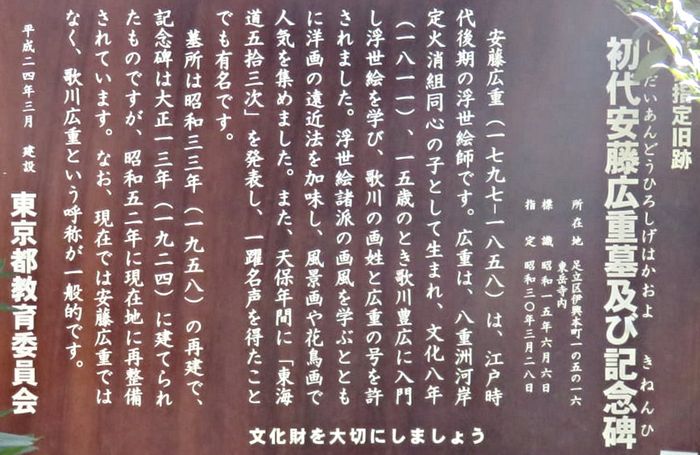 指定旧跡
しょだいあんどうひろしげはかおよ　きねんひ
初代安藤広重墓及び記念碑
所在地　足立区伊興本町一の五の一六
東岳寺内
標識　昭和一五年六月六日
指定　昭和三〇年三月二八日
安藤広重（一七九七－一八五八）は、江戸時
代後期の浮世絵師です。広重は、八重洲河岸
定火消組同心の子として生まれ、文化八年
（一八一一）、一五歳のとき歌川豊広に入門
し浮世絵を学び、歌川の画姓と広重の号を許
されました。浮世絵諸派の画風を学ぶととも
に洋画の遠近法を加味し、風景画や花鳥画で
人気を集めました。また、天保年間に「東海
道五拾三次」を発表し、一躍名声を得たこと
でも有名です。
墓所は昭和三三年（一九五八）の再建で、
記念碑は大正一三年（一九二四）に建てられ
たものですが、昭和五二年に現在地に再整備
されています。なお、現在では安藤広重では
なく、歌川広重という呼称が一般的です。
平成二四年三月　建設
東京都教育委員会
文化財を大切にしましょう